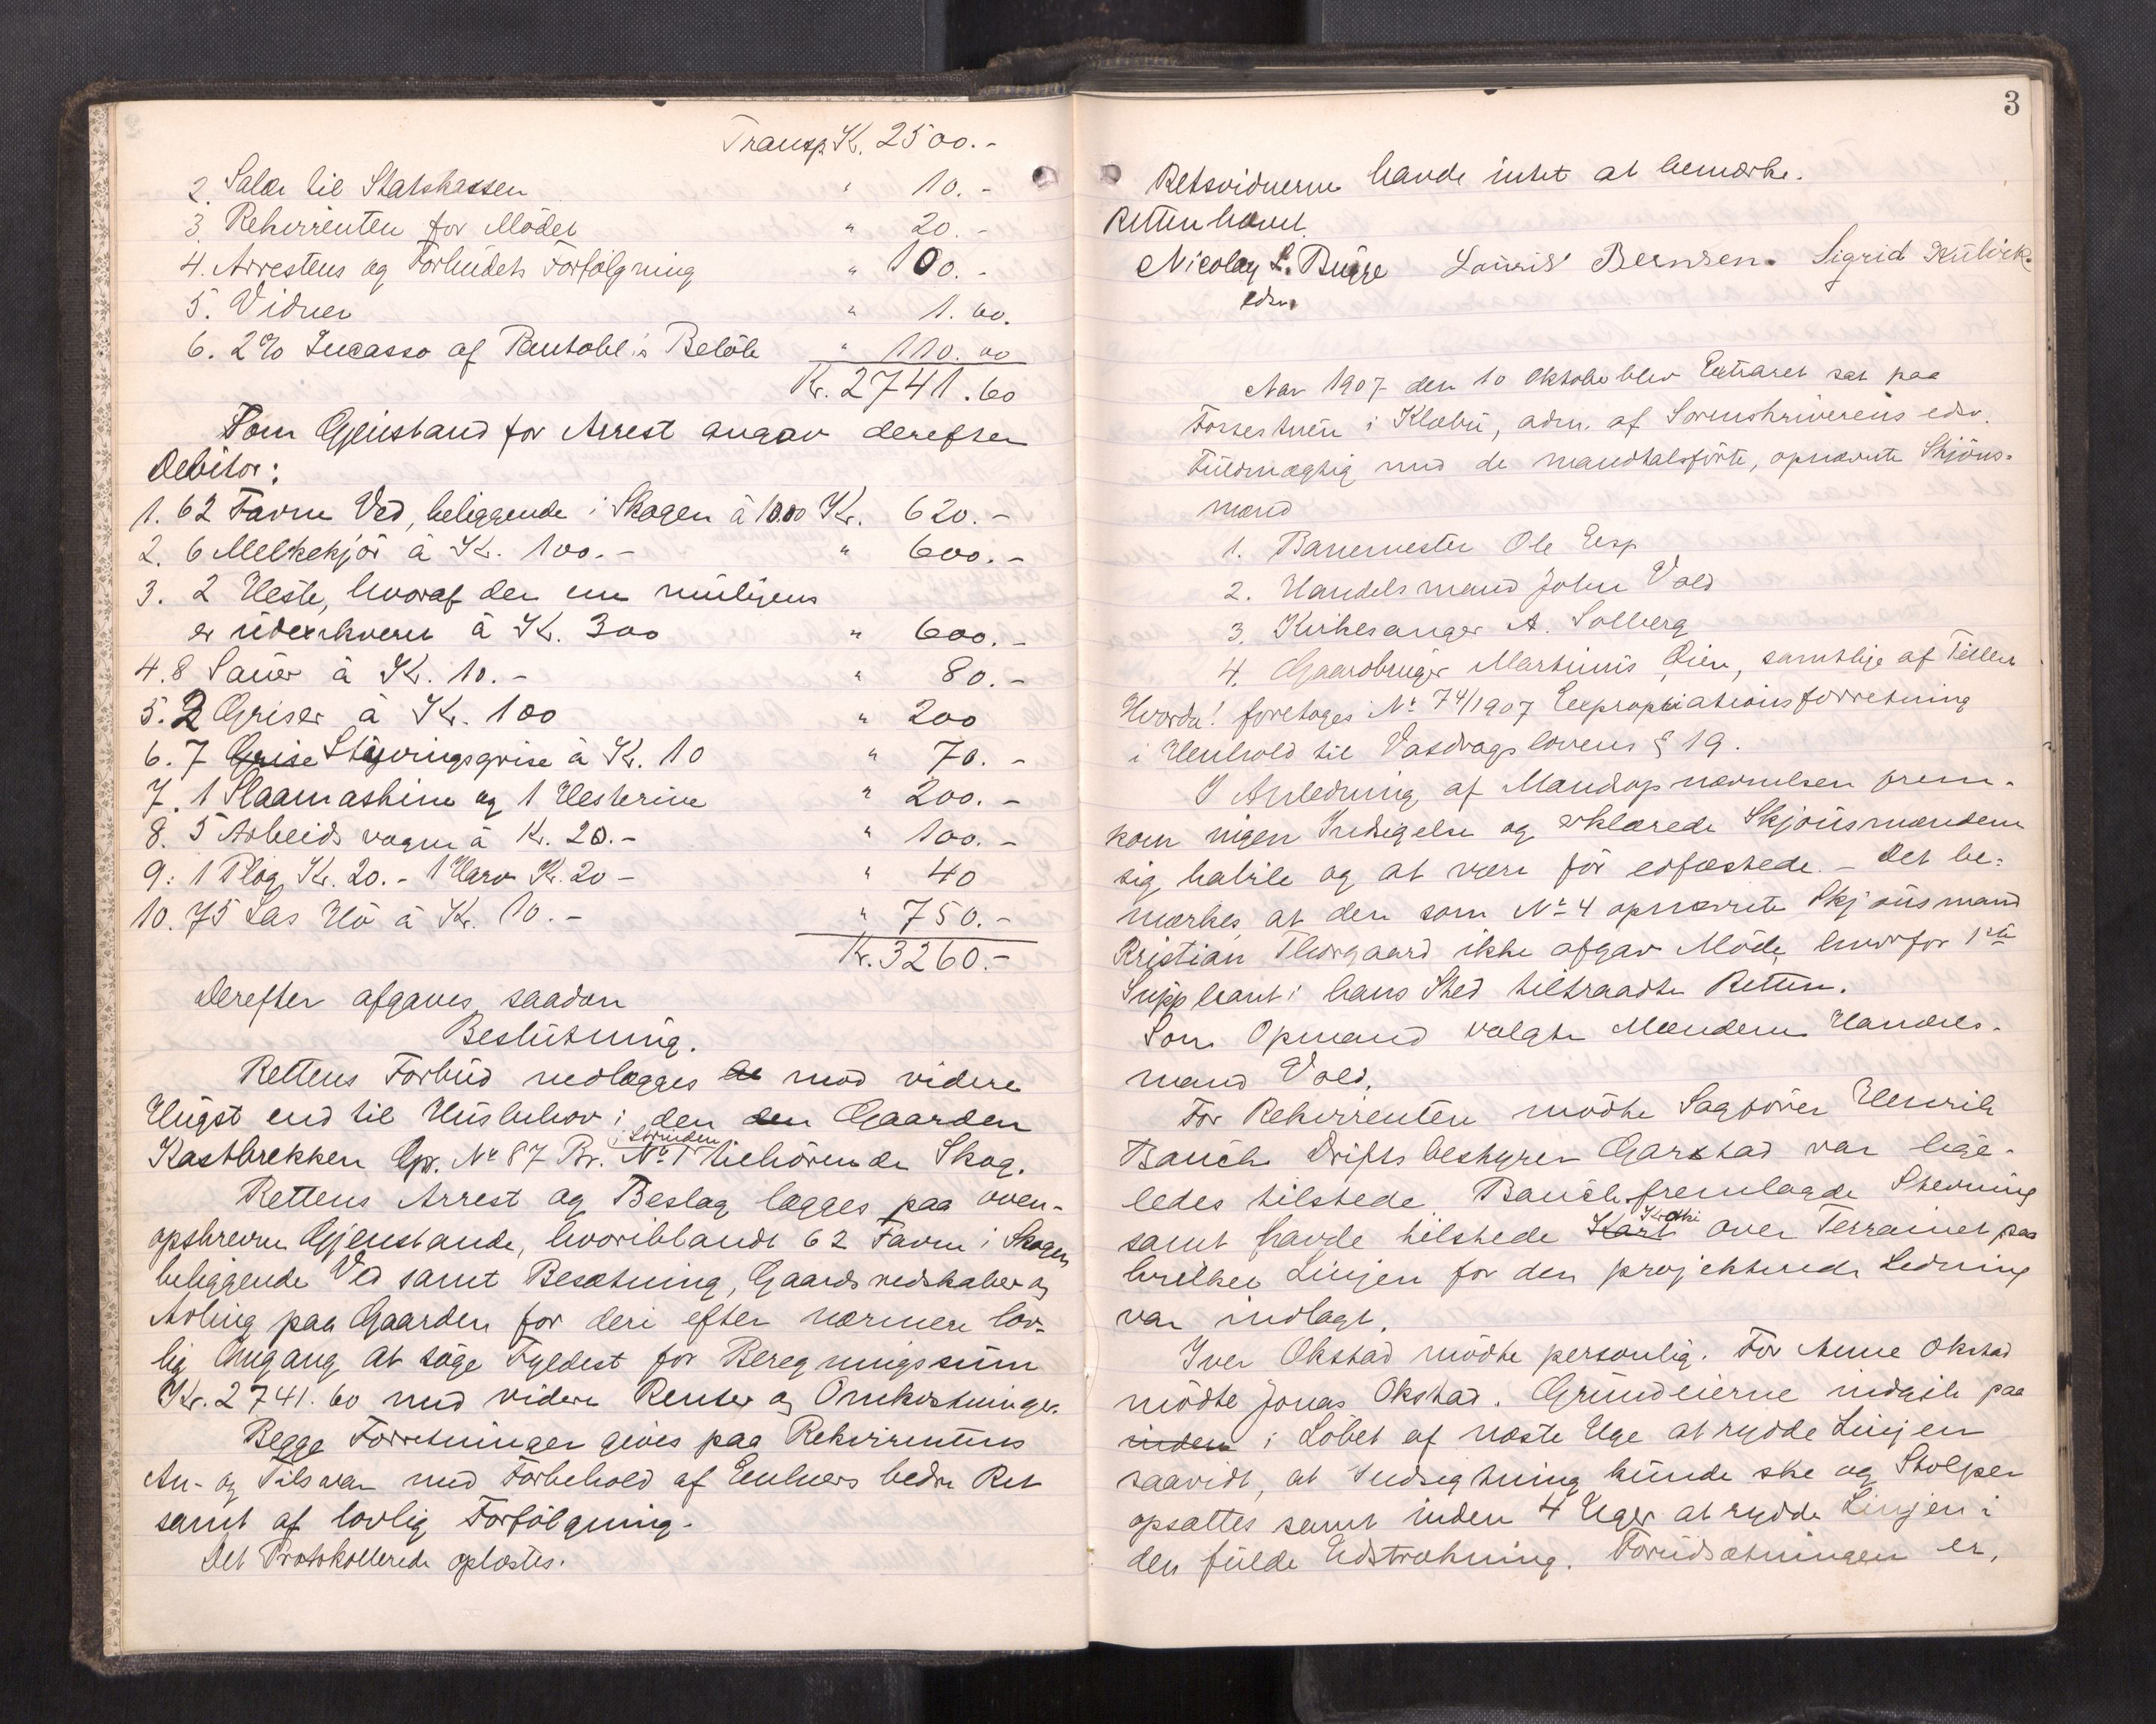 Transp. Kr. 2500.-
2. Salær til Statskassen " 10.-
3. Rekvirenten for Mödet " 20.-
4. Arrestens og Forbudets Forfölgning " 100.-
5. Vidner " 1.60.
6. 2% Incasso af Pantobl.s Belöb " 110.00
Kr. 2741.60
Som Gjenstand for Arrest angav derefter
Debitor:
1. 62 Favne Ved, beliggende i Skogen à 10.00 Kr. 620.-
2. 6 Melkekjör à Kr. 100.- " 600.-
3. 2 Heste, hvoraf den ene muligens
er udexkveret à Kr. 300 " 600.-
4. 8 Sauer à Kr. 10.- " 80.-
5. 2 Griser à Kr. 100 " 200
6. 7 Grise Stigvingsgrise à Kr. 10 " 70.-
7. 1 Slaamaskine og 1 Hesterive " 200.-
8. 5 Arbeidsvogne à Kr. 20.- " 100.-
9: 1 Plog Kr. 20.- 1 Harv Kr. 20- " 40
10. 75 Las Hö à Kr. 10.- " 750.-
Kr. 3260.-
Derefter afgaves saadan
Beslutning.
Rettens Forbud nedlægges mod videre
Hugst end til Husbehov i den den Gaarden
i Strinden
Kastbrekken Gr. No 87 Br. No 1 tilhörende Skog.
Rettens Arrest og Beslag lægges paa oven-
opskrevne Gjenstande, hvoriblandt 62 Favne i Skogen
beliggende Ved samt Besætning, Gaardsredskaber og
Avling paa Gaarden for deri efter nærmere lov-
lig Omgang at söge Fyldest for Beregningssum
Kr. 2741.60 med videre Renter og Omkostninger.
Begge Forretninger gives paa Rekvirentens
An- og Tilsvar med Forbehold af Enhvers bedre Ret
samt af lovlig Forfölgning.
Det Protokollerede oplæstes.
3
Retsvidnerne havde intet at bemærke.
Retten hævet.
Nicolay L. Bugge Lauris Berndsen. Sigrid Kulvik.
edsv.
Aar 1907 den 10 Oktober blev Extraret sat paa
Forsetmoen i Klæbu, adm. af Sorenskriverens edsv.
Fuldmægtig med de mandtalsförte, opnævnte Skjöns-
mænd
1. Banemester Ole Eesp
2. Handelsmand John Vold
3. Kirkesanger A. Solberg
4. Gaardbruger Martinus Öien, samtlige af Tiller
Hvorda! foretoges No 74/1907 Expropriationsforretning
i Henhold til Vasdragslovens § 19.
I Anledning af Mandopnævnelsen frem-
kom ingen Indsigelse og erklærede Skjönsmændene
sig habile og at være för edfæstede. - Det be-
mærkes, at den som No 4 opnævnte Skjönsmand
Kristian Thorgaard ikke afgav Möde, hvorfor 1ste
Suppleant i hans Sted tiltraadte Retten.
Som Opmand valgte Mændene Handels-
mand Vold.
For Rekvirenten mödte Sagförer Henrik
Bauck. Driftsbestyrer Garstad var lige-
ledes tilstede. Bauck fremlagde Stevning
Krokki
samt havde tilstede Kart over Terrainet paa
hvilket Linjen for den projekterede Ledning
var indlagt.
Iver Okstad mödte personlig. For Anne Okstad
mödte Jonas Okstad. Grundeierne indgik paa
inden i Löbet af næste Uge at rydde Linjen
saavidt, at Indsigtning kunde ske og Stolper
opsættes samt inden 4 Uger at rydde Linjen i
den fulde Udstrækning. Forudsætningen er,